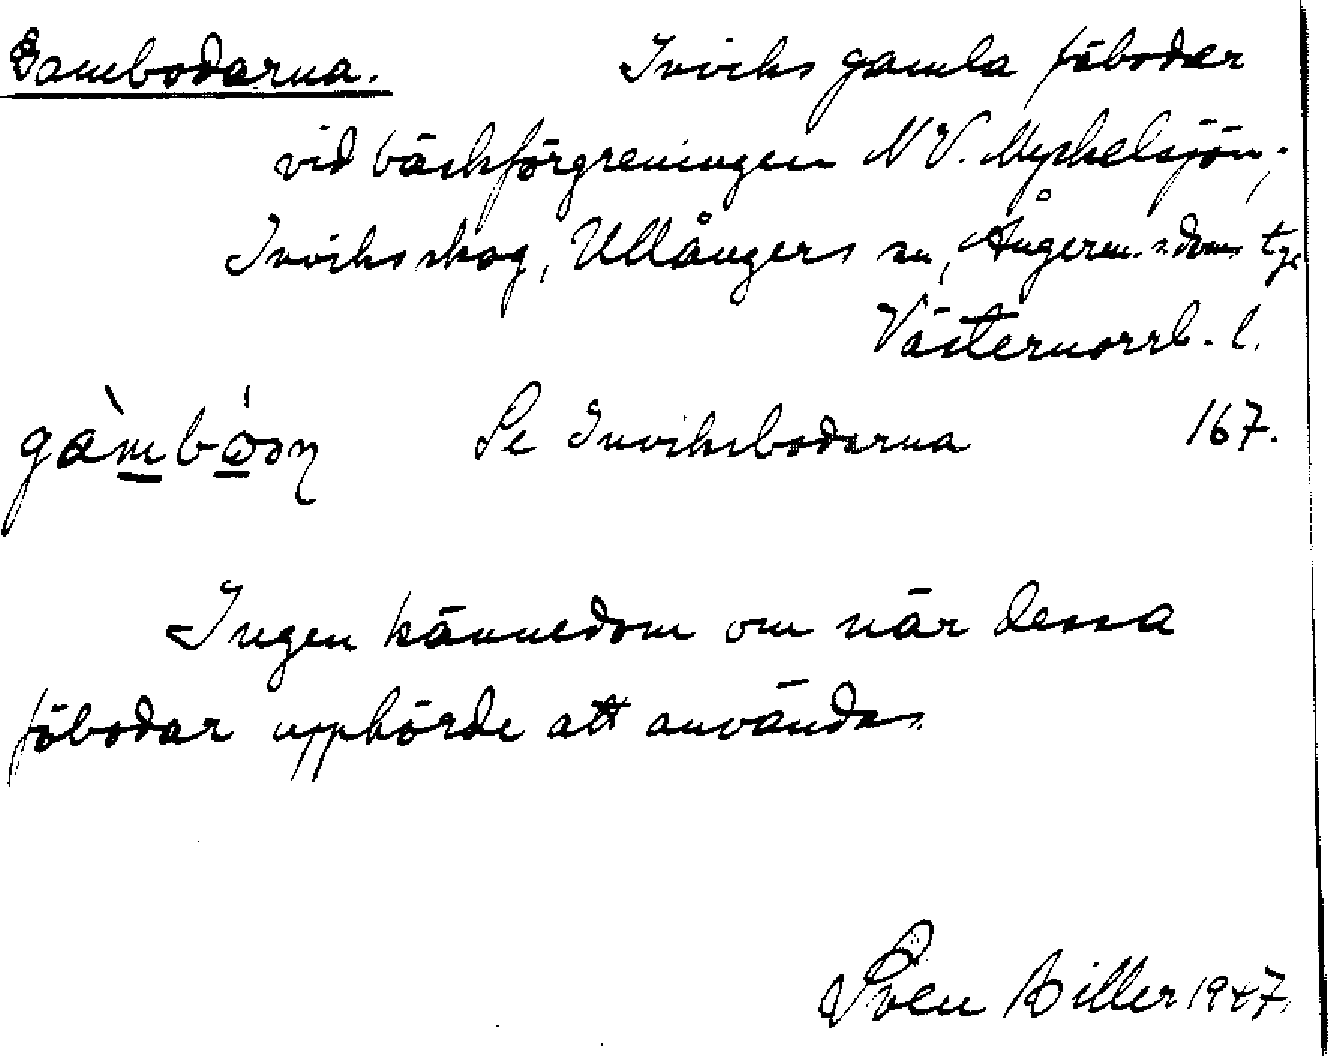 Gambodarna. Inviks gamla fäbodar
vid bäckförgreningen N V. Myckelsjön,
Inviks skog, Ullångers sn, Ångerm. s doms tg.
Västernorrl. l.
gàmbó̱ɷn Se Inviksbodarna 167.
Ingen kännedom om när dessa
fäbodar upphörde att användas
Sven Hiller 1947.